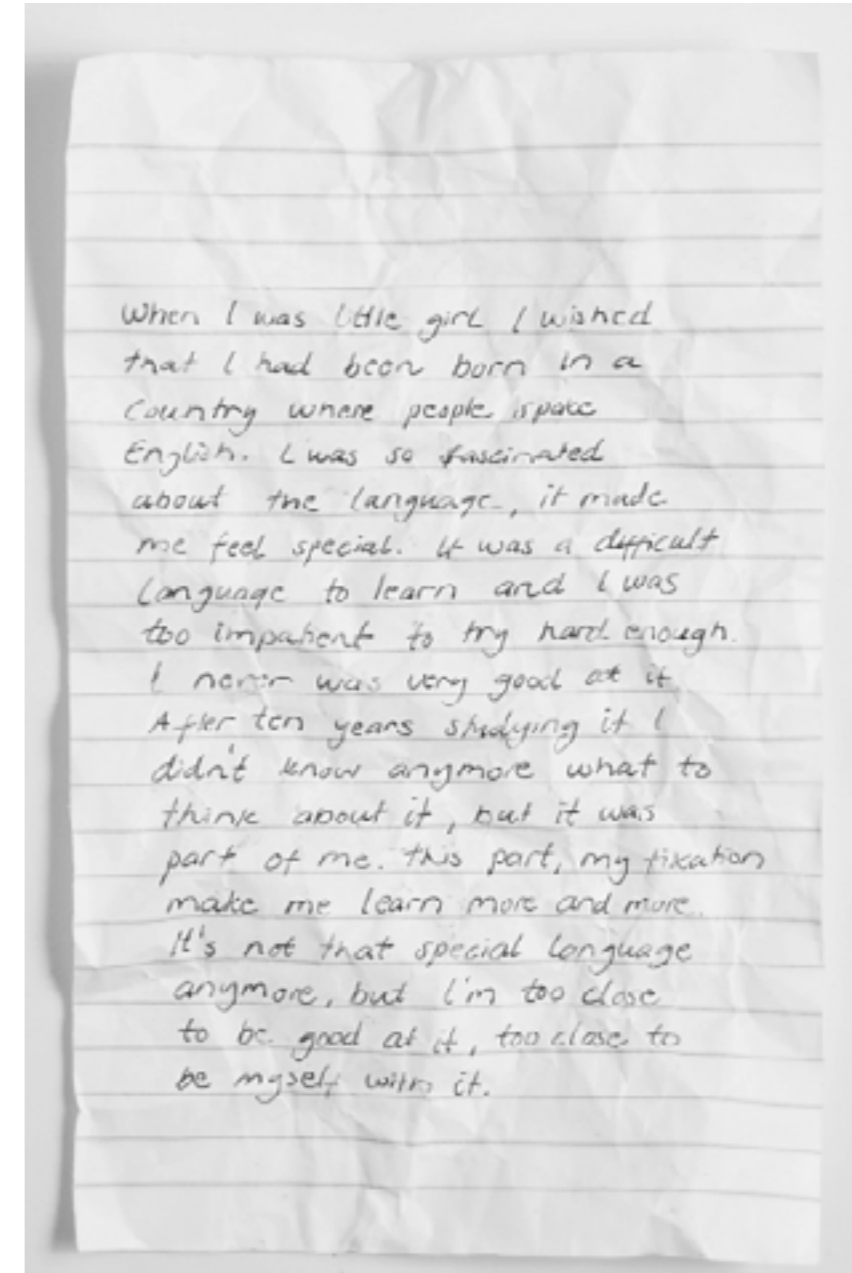 When I was little girl I wished
that I had been born in a
country where people spoke
English. I was so fascinated
about the language, it made
me feel special. It was a difficult
language to learn and I was
too impatient to try hard enough.
I never was very good at it.
After ten years studying it I
didn't know anymore what to
think about it, but it was
part of me. This part, my fixation
make me learn more and more.
It's not that special language
anymore, but I'm too close
to be good at it, too close to
be myself with it.